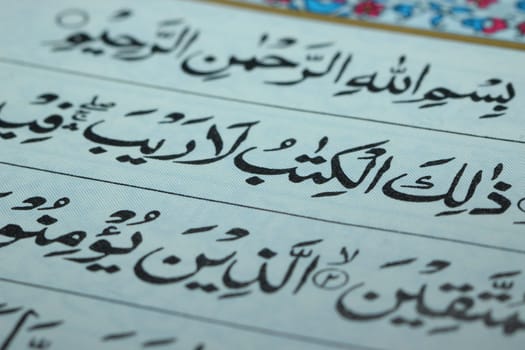 بِسْمِ اللهِ الرَّحْمٰنِ الرَّحِيْمِ
ذٰلِكَ الْكِتٰبُ لَا رَيْبَ ۛ فِيْ
مُتَّقِيْنَ ۙ﴿۲﴾ الَّذِيْنَ يُؤْمِنُوْ